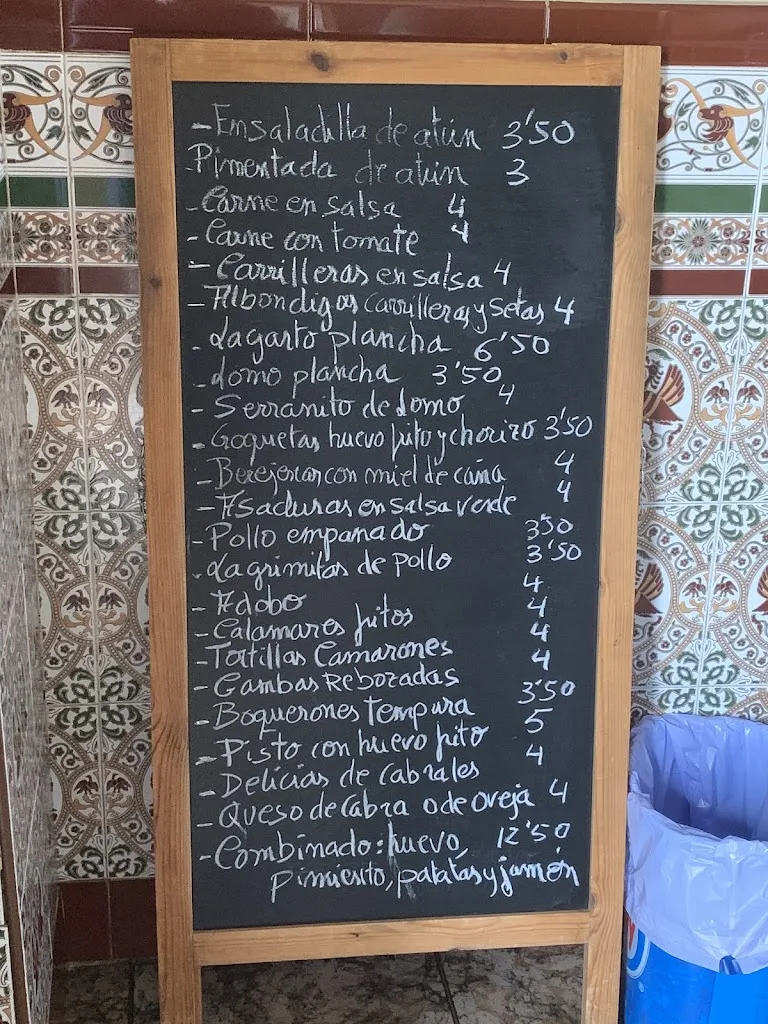 - Ensaladilla de atún 3'50
- Pimentada de atún 3
- Carne en salsa 4
- Carne con tomate 4
- Carrilleras en salsa 4
- Albondigas carrilleras y setas 4
- Lagarto plancha 6'50
- Lomo plancha 3'50
- Serranito de Lomo 4
- Croquetas huevo frito y chorizo 3'50
- Berejenas con miel de caña 4
- Asaduras en salsa verde 4
- Pollo empanado 3'50
- Lagrimitas de pollo 3'50
- Adobo 4
- Calamares fritos 4
- Tortillas Camarones 4
- Gambas Rebozadas 4
- Boquerones Tempura 3'50
- Pisto con huevo frito 5
- Delicias de Cabrales 4
- Queso de Cabra o de oveja 4
- Combinado: huevo, 12'50
pimiento, patatas y jamón